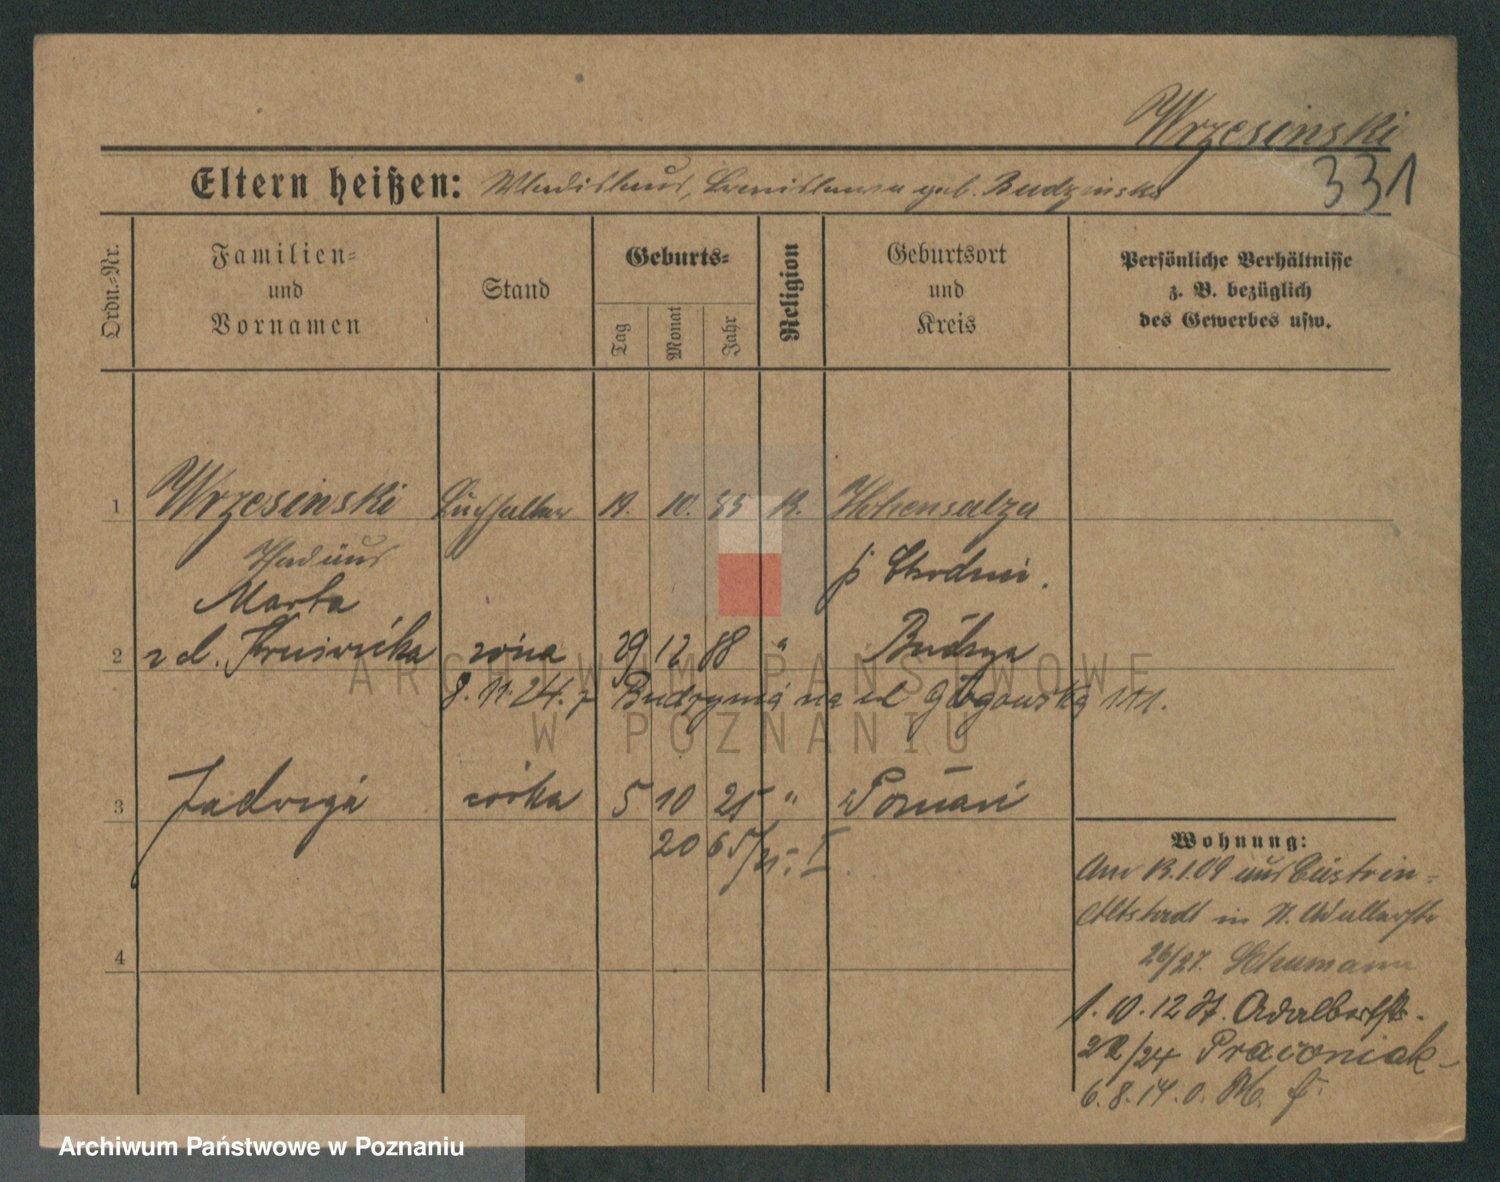 Wrzesinski
331
Eltern heißen: Wladislaus, Bronislawa geb. Budzinska
Ordn.-Nr.
Familien-
und
Vornamen
Stand
Geburts-
Tag
Monat
Jahr
Religion
Geburtsort
und
Kreis
Persönliche Verhältnisse
z. B. bezüglich
des Gewerbes usw.
1 Wrzesinski Buchhalter 19. 10. 85 K. Hohensalza
Thadäus
Marta
2 z d. Kruświcka żona 29 12 88 " Budzyń
8. 11. 24. z Budzynia na ul Głogowską 111.
3 Jadwiga córka 5 10 25 " Poznań
20 65/25. I
4
Wohnung:
Am 13.1.09 aus Cüstrin-
Altstadt in St. Wallerstr
26/27. Schumann
1. 10. 12 St. Adalbertstr.
22/24
6. 8. 14. o. M.
ARCHIWUM PAŃSTWOWE
W POZNANIU
Archiwum Państwowe w Poznaniu